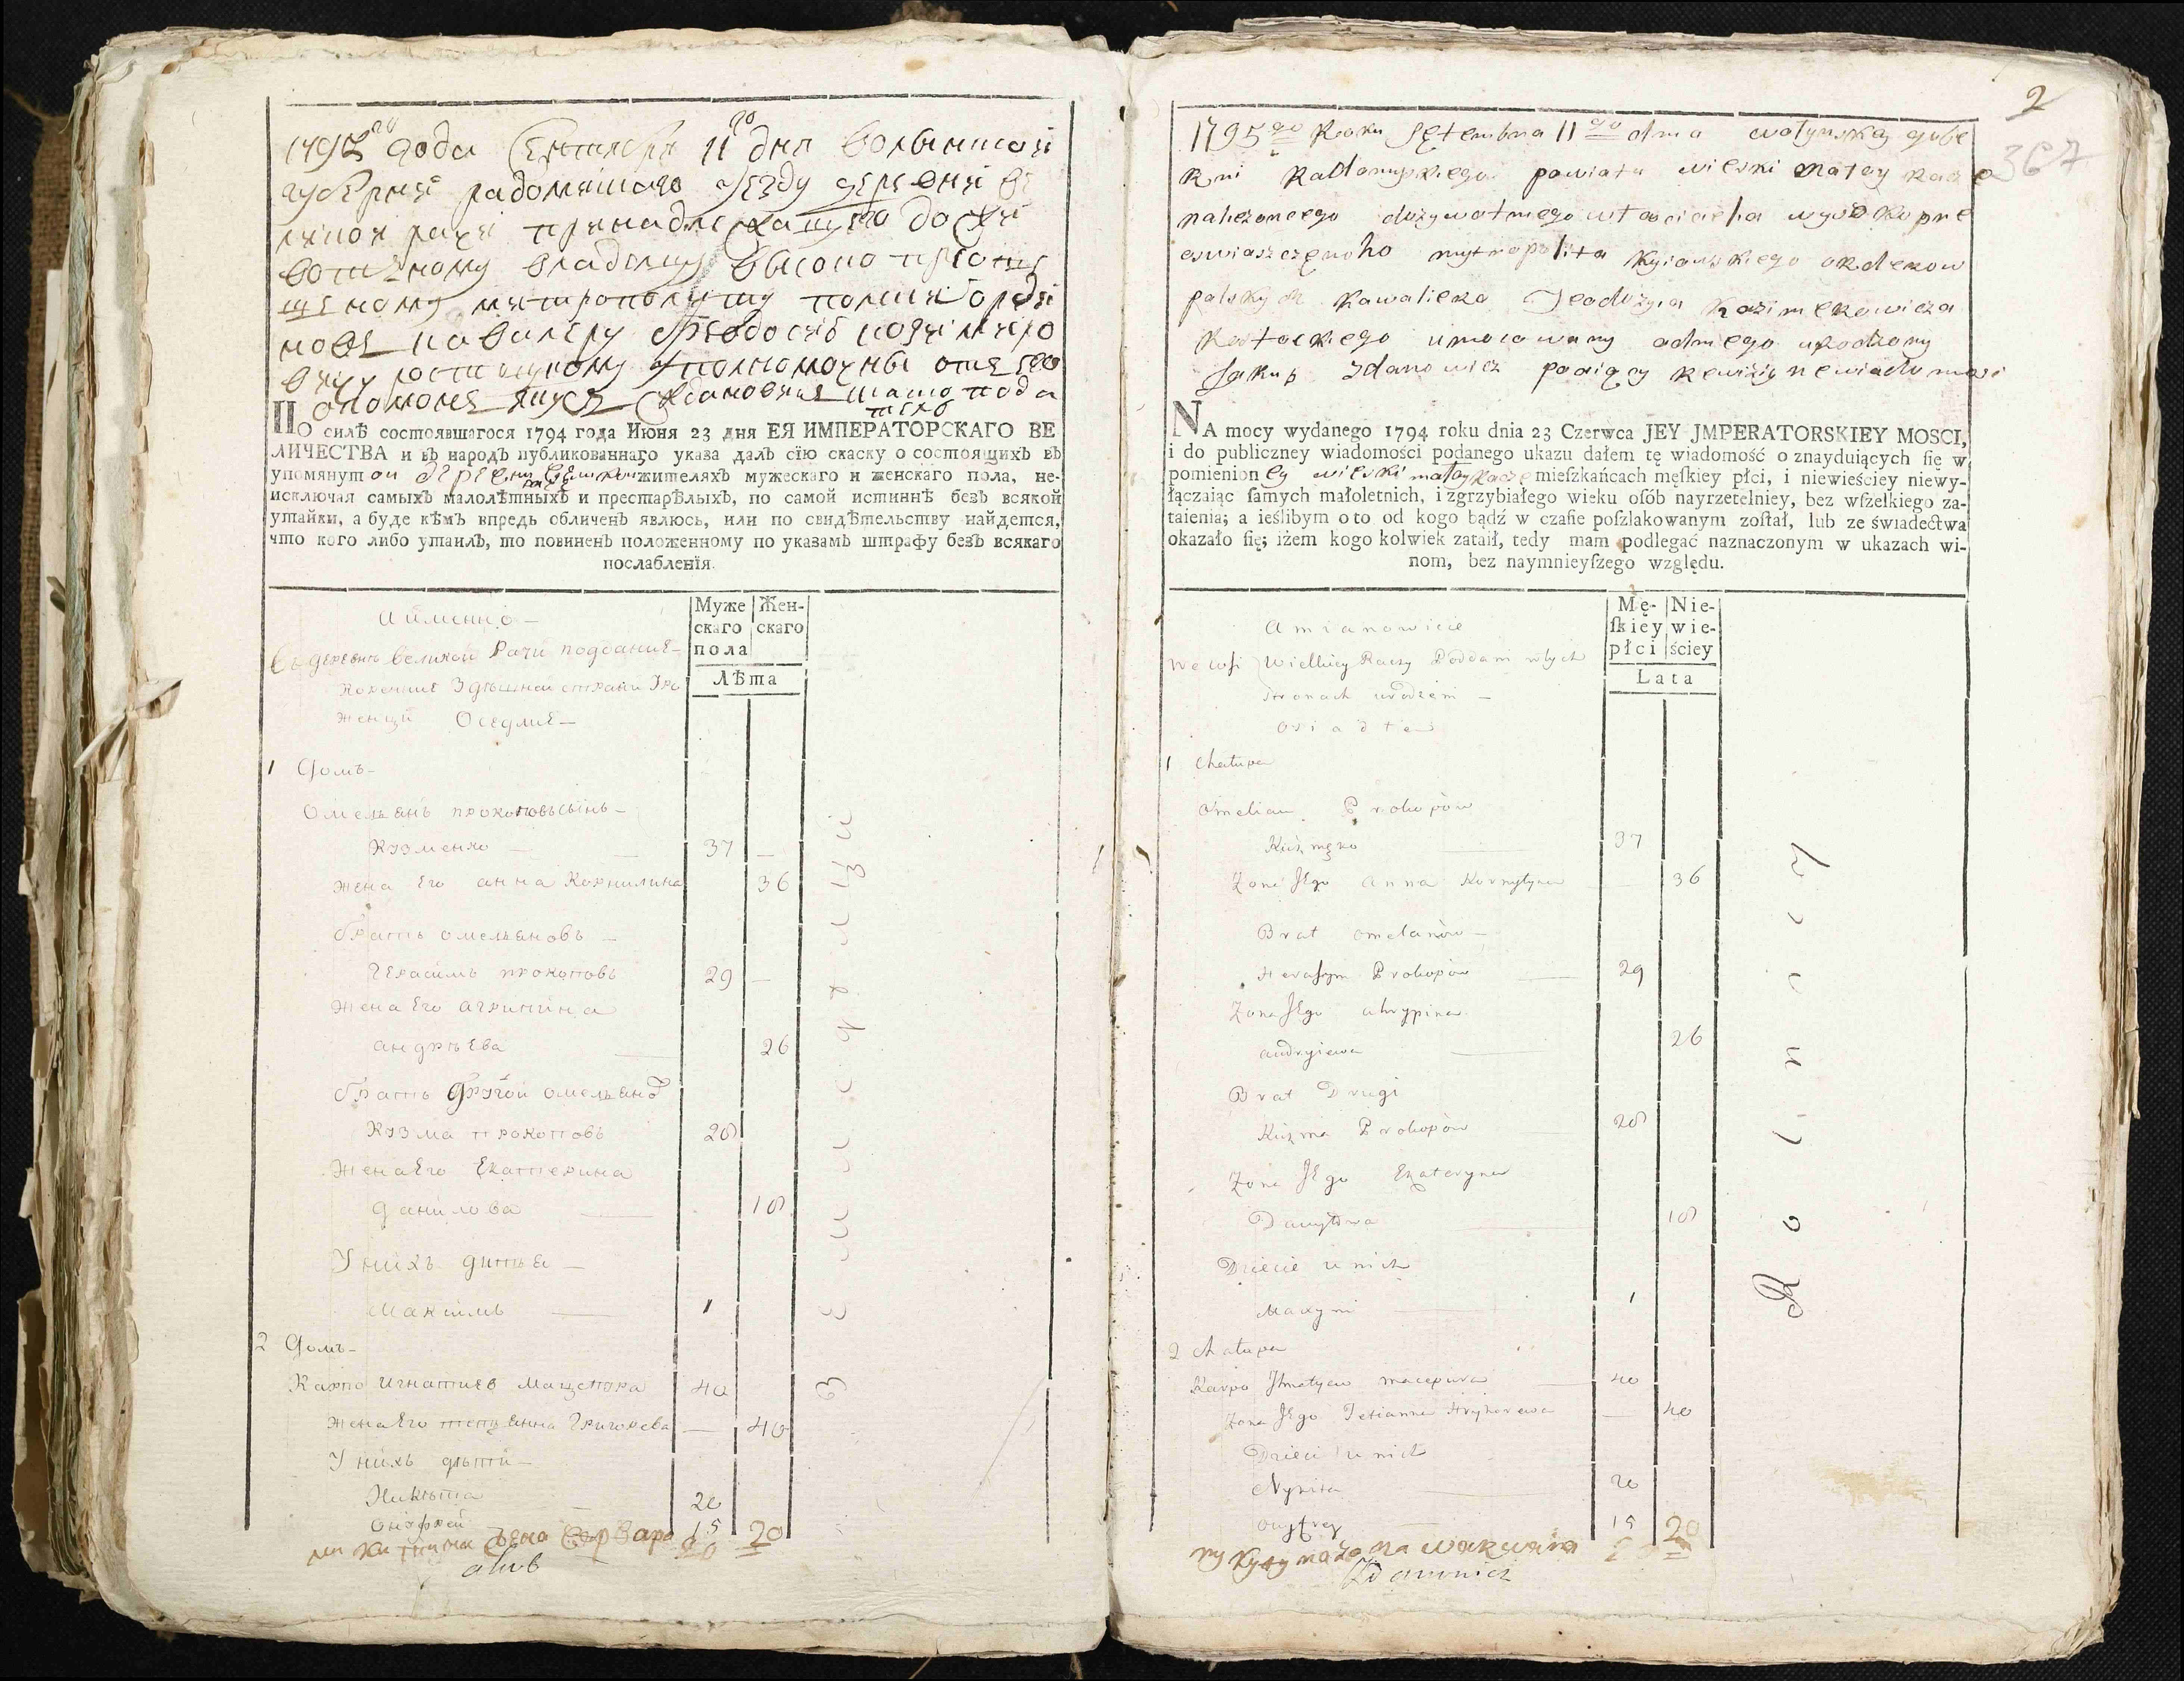 1795го года Сентября 11го дня волынской
губерней радомишлскаго уезду деревни ве
ликой рачи принадлежащего до жи
вотному владелцу высоко преосвя
щеному митрополиту полских орде
новъ кавалеру Феодосию казимиро
вичу ростоцкому уполномочный отъ его
економомъ якубъ Ждановичъ
ПО силѣ состоявшагося 1794 года Июня 23 дня ЕЯ ИМПЕРАТОРСКАГО ВЕ
ЛИЧЕСТВА и въ народъ публикованнаго указа далъ сїю скаску о состоящихъ въ
упомянутой деревни жителяхъ мужескаго и женскаго пола, не-
исключая самыхъ малолѣтныхъ и престарѣлыхъ, по самой истиннѣ безъ всякой
утайки, а буде кѣмъ впредь обличенъ явлюсь, или по свидѣтельству найдется,
что кого либо утаилъ, то повиненъ положенному по указамъ штрафу безъ всякаго
послабленїя.
а именно
Муже Жен-
скаго скаго
пола
Лѣта
въ деревнѣ великой Рачи подданние
Коренние Здешной страни Уро
женци Оседлие
1 Домъ
Омелянъ прокоповъ сынъ
Кузменко 37
жена Его анна Корнилина 36
братъ омеляновъ
Герасимъ прокоповъ 29
жена Его агрипина
андрѣева 26
братъ другой омеляновъ
Кузма прокоповъ 20
жена Его Екатерина
данилова 18
У нихъ дитя
Максимъ 1
2 Домъ
Карпо игнатиев Мацепура 40
жена Его тетянна Григорева 40
У нихъ дѣти
Никита 20
Онофрей 15
никитина жена варвара 20
2
367
1795go Roku Septembra 11go dnia wołynskey gube
Rni Radomyskiego powiatu wioski małey Racze
należoncego dożywotniego własciciela wysoko pre
oswiaszczęnoho mytropolita kyiowskiego orderow
polskych kawaliera Teodozyia kazimierowicza
Rostockiego umocowany od niego urodzony
Jakub Zdanowicz
NA mocy wydanego 1794 roku dnia 23 Czerwca JEY JMPERATORSKIEY MOSCI,
i do publiczney wiadomości podanego ukazu dałem tę wiadomość o znayduiących się w
pomienioney wioski małey Racze mieſzkańcach męſkiey płci, i niewieściey niewy-
łączaiąc ſamych małoletnich, i zgrzybiałego wieku oſób nayrzetelniey, bez wſzelkiego za-
taienia; a ieślibym o to od kogo bądź w czaſie poſzlakowanym zoſtał, lub ze świadectwa
okazało się; iżem kogo kolwiek zataił, tedy mam podlegać naznaczonym w ukazach wi-
nom, bez naymnieyſzego względu.
a mianowicie
Mę- Nie-
ſkiey wie-
płci ściey
Lata
we wsi Wielkiey Raczy Poddani w tych
stronach urodzeni
osiadłe
1 Chałupa
Omelian Prokopów
Kuzmęko 37
Zona Jego anna Kornylyna 36
Brat omelanów
Herasym Prokopów 29
Zona Jego ahrypina
andryiewa 26
Brat Drugi
Kuzma Prokopów 20
Zona Jego Ekateryna
Danyłowa 18
Dziecie u nich
Maxym 1
2 Chałupa
Karpo Ihnatyew macepura 40
Zona Jego Tetianna Hryhorewa 40
Dzieci u nich
Nykita 20
Onyfrey 15
nykytyna żona warwara 20
Zdanowicz